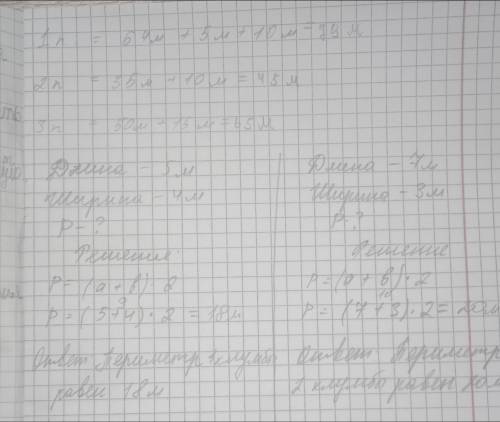 1п = 64м + 5м + 10м = 79м
2п = 35м + 10м = 45м
3п = 50м + 15м = 65м
Длина - 5м
Ширина - 4м
P - ?
Решение
P = (a + b) · 2
9
P = (5+4) · 2 = 18м
Ответ Периметр 1 клумбы
равен 18м
Длина - 7м
Ширина - 3м
P ?
Решение
P = (a + b) · 2
10
P = (7+3) · 2 = 20м
Ответ Периметр
2 клумбы равен 20м